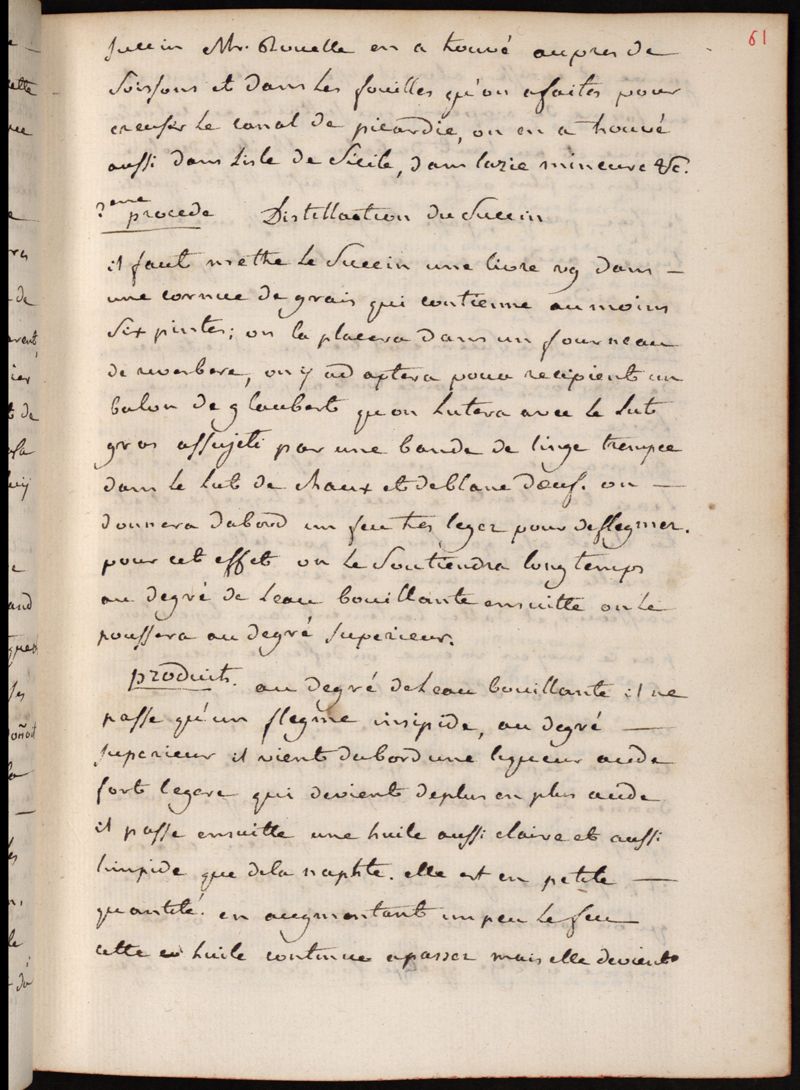 61
succin Mr. Rouelle en a trouvé aupres de
Soissons et dans les fouilles qu'on afaites pour
creuser le canal de picardie, on en a trouvé
aussi dans lisle de Sicile, dans lazie mineure &c.
?eme procede Distillaction du Succin
il faut mettre le Succin une livre vg dans —
une cornue de grais qui contienne aumoins
Six pintes; on la placera dans un fourneau
de reverbere, on y adaptera pour recipient un
balon de glaubert qu'on lutera avec le lut
gras assujeti par une bande de linge trempée
dans le lut de chaux et deblanc dœuf. on —
donnera dabord un feu tres leger pour deflegmer.
pour cet effet on le Soutiendra longtemps
au degré de leau bouillante ensuitte on le
poussera au degré Superieur.
produits. au degré deleau bouillante il ne
passe qu'un flegme insipide, au degré —
superieur il vient dabord une liqueur acide
fort legere qui devient deplus en plus acide
il passe ensuitte une huile aussi claire et aussi
limpide que dela naphte. elle est en petite —
quantité. en augmentant un peu le feu
cette huile continue apasser mais elle devient